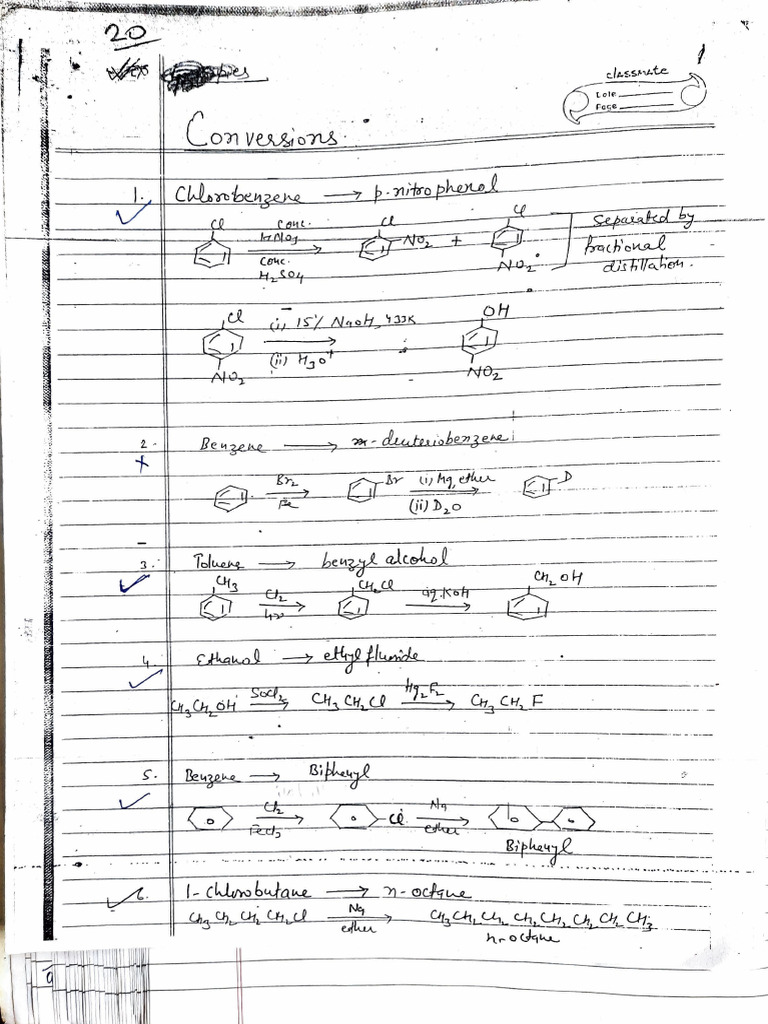 20
1
classmate
Date
Page
Conversions.
1. Chlorobenzene → p-nitrophenol
Cl conc. HNO3 conc. H2SO4 → Cl NO2 + Cl NO2 Separated by fractional distillation.
Cl NO2 (i) 15% NaOH, 433K (ii) H3O+ → OH NO2
2. Benzene → deuteriobenzene
Br2 Fe → Br (i) Mg, ether (ii) D2O → D
3. Toluene → benzyl alcohol
CH3 Cl2 hν → CH2Cl aq. KOH → CH2OH
4. Ethanol → ethyl fluoride
CH3CH2OH SOCl2 → CH3CH2Cl Hg2F2 → CH3CH2F
5. Benzene → Biphenyl
Cl2 FeCl3 → Cl Na ether →
Biphenyl
6. 1-chlorobutane → n-octane
CH3CH2CH2CH2Cl Na ether → CH3CH2CH2CH2CH2CH2CH2CH3
n-octane